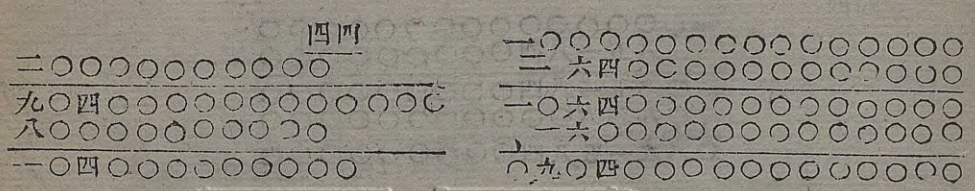 四四
二〇〇〇〇〇〇〇〇〇〇
九〇四〇〇〇〇〇〇〇〇〇〇〇〇
八〇〇〇〇〇〇〇〇〇〇
一〇四〇〇〇〇〇〇〇〇〇
一〇〇〇〇〇〇〇〇〇〇〇〇〇〇〇
二 六四〇〇〇〇〇〇〇〇〇〇〇〇
一〇六四〇〇〇〇〇〇〇〇〇〇〇〇
一六〇〇〇〇〇〇〇〇〇〇〇〇〇
〇九〇四〇〇〇〇〇〇〇〇〇〇〇〇